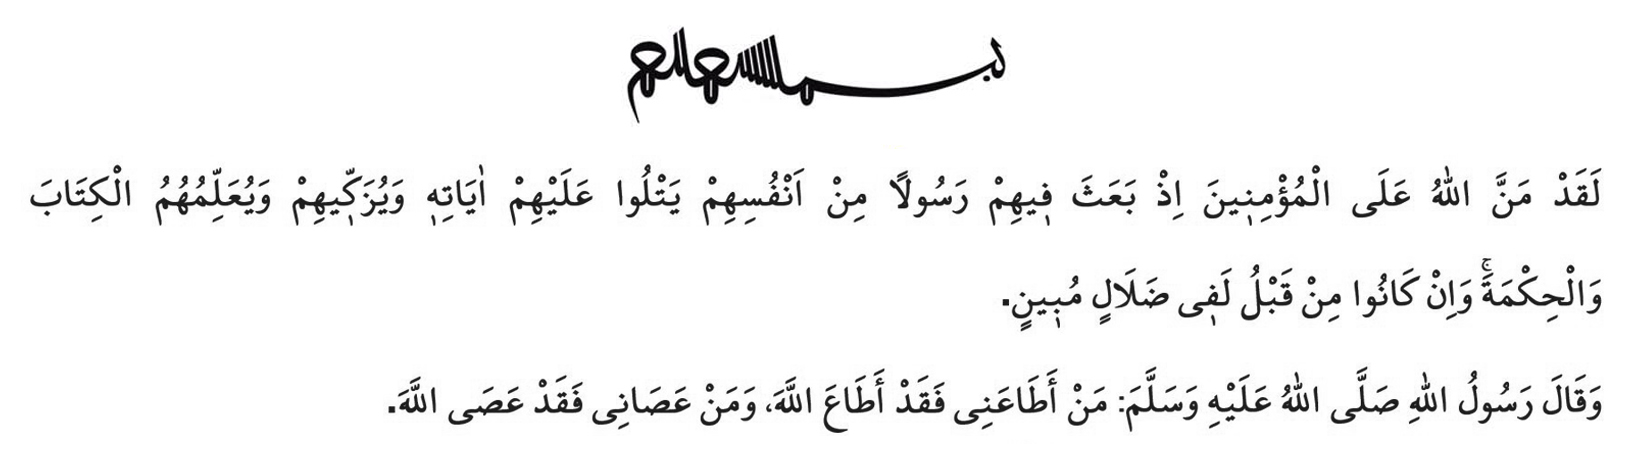 بسم الله الرحمن الرحيم
لَقَدْ مَنَّ اللّٰهُ عَلَى الْمُؤْمِنٖينَ اِذْ بَعَثَ فٖيهِمْ رَسُولاً مِنْ اَنْفُسِهِمْ يَتْلُوا عَلَيْهِمْ اٰيَاتِهٖ وَيُزَكّٖيهِمْ وَيُعَلِّمُهُمُ الْكِتَابَ
وَالْحِكْمَةَۚ وَاِنْ كَانُوا مِنْ قَبْلُ لَفٖى ضَلَالٍ مُبٖينٍ.
وَقَالَ رَسُولُ اللّٰهِ صَلَّى اللّٰهُ عَلَيْهِ وَسَلَّمَ: مَنْ أَطَاعَنِى فَقَدْ أَطَاعَ اللَّهَ، وَمَنْ عَصَانِى فَقَدْ عَصَى اللَّهَ.